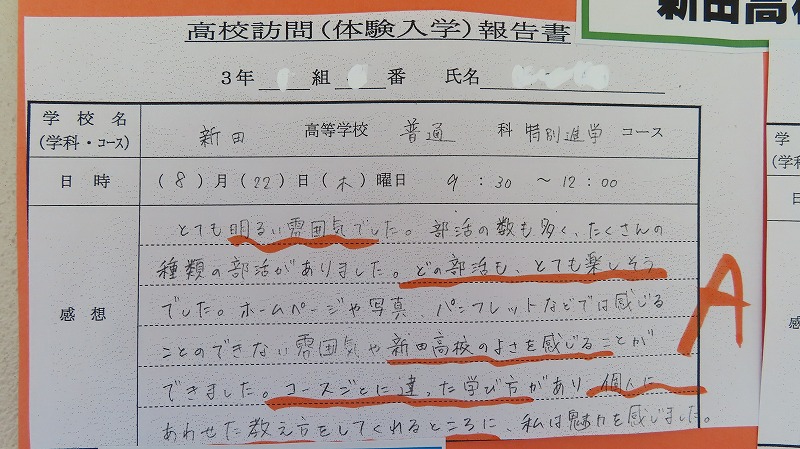 新田高校
高校訪問(体験入学)報告書
3年 組 番 氏名
学校名 新田 高等学校 普通 科 特別進学 コース
(学科・コース)
日時 (8)月(22)日(木)曜日 9:30 ~12:00
感想
とても明るい雰囲気でした。部活の数も多く、たくさんの
種類の部活がありました。どの部活も、とても楽しそう
でした。ホームページや写真、パンフレットなどでは感じる
ことのできない雰囲気や新田高校のよさを感じることが
できました。コースごとに違った学び方があり、個人に
あわせた教え方をしてくれるところに、私は魅力を感じました。
A
学
(学科
日
感